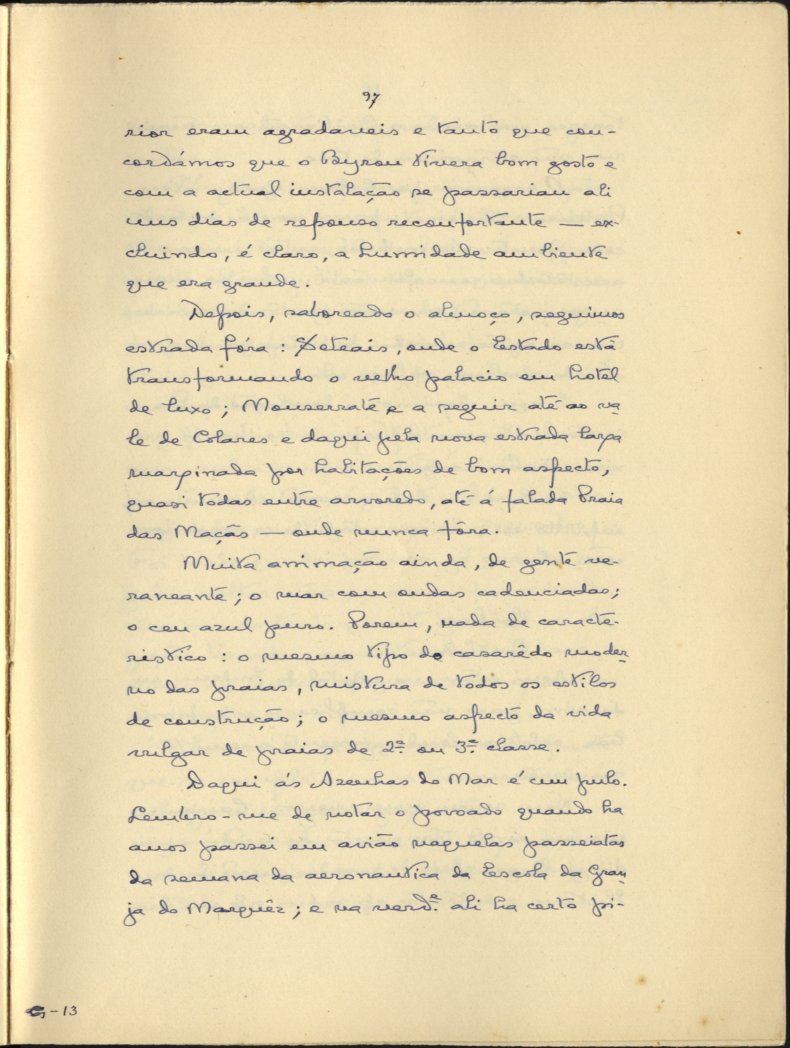 97
rior eram agradaveis e tanto que con-
cordámos que o Byron tivera bom gosto e
com a actual instalação se passariam ali
uns dias de repouso reconfortante — ex-
cluindo, é claro, a humidade ambiente
que era grande.
Depois, saboreado o almoço, seguimos
estrada fóra: Seteais, onde o Estado está
transformando o velho palacio em hotel
de luxo; Monserrate e a seguir até ao va-
le de Colares e daqui pela nova estrada larga
marginada por habitações de bom aspecto,
quasi todas entre arvoredo, até á falada Praia
das Maçãs — onde nunca fôra.
Muita animação ainda, de gente ve-
raneante; o mar com ondas cadenciadas;
o ceu azul puro. Porem, nada de caracte-
ristico: o mesmo tipo de casarêdo moder-
no das praias, mistura de todos os estilos
de construção; o mesmo aspecto da vida
vulgar de praias de 2ª ou 3ª classe.
Daqui ás Azenhas do Mar é um pulo.
Lembro-me de notar o povoado quando ha
anos passei em avião naquelas passeiatas
da semana da aeronautica da Escola da Gran-
ja do Marquêz; e na verd.e ali ha certo pi-
G-13